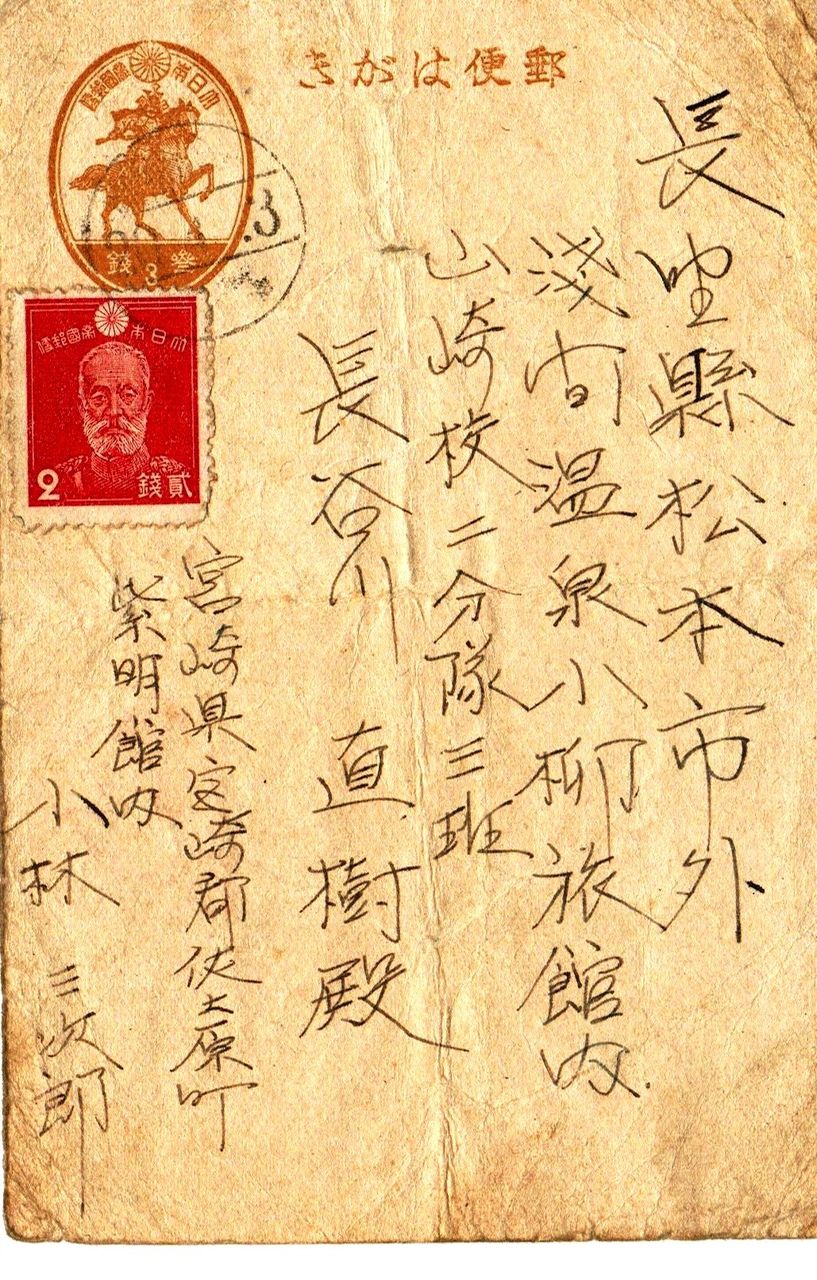 郵便はがき
大日本帝國郵便
參錢
3
.3
大日本帝國郵便
2
貳錢
長野縣松本市外
淺间温泉小柳旅館内
山崎校二分隊三班
長谷川 直樹殿
宮崎県宮崎郡佐土原町
紫明館内
小林 三次郎